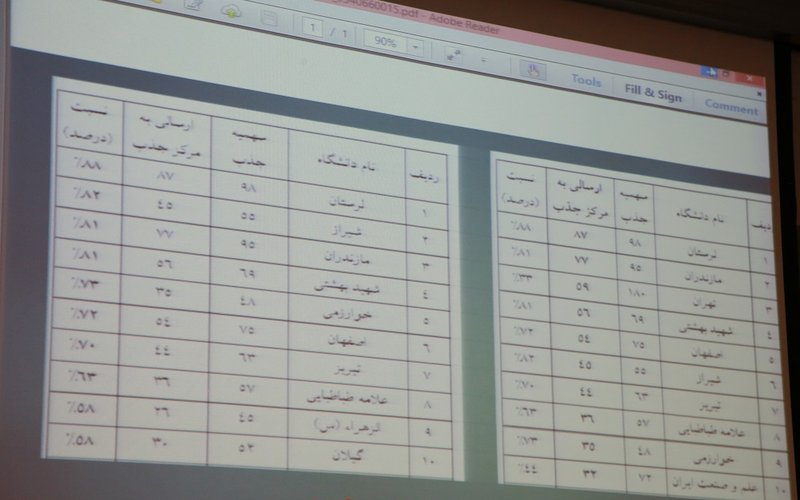 .pdf - Adobe Reader
1 / 1 90% Tools Fill & Sign Comment
ردیف نام دانشگاه سهمیه جذب ارسالی به مرکز جذب نسبت (درصد)
۱ لرستان ۹۸ ۸۷ ٪۸۸
۲ مازندران ۹۵ ۷۷ ٪۸۱
۳ تهران ۱۸۰ ۵۹ ٪۳۳
۴ شهید بهشتی ۶۹ ۵۶ ٪۸۱
۵ اصفهان ۷۵ ۵۴ ٪۷۲
۶ شیراز ۵۵ ۴۵ ٪۸۲
۷ تبریز ۶۳ ۴۴ ٪۷۰
۸ علامه طباطبایی ۵۷ ۳۶ ٪۶۳
۹ خوارزمی ۴۸ ۳۵ ٪۷۳
۱۰ علم و صنعت ایران ۷۲ ۳۲ ٪۴۴
ردیف نام دانشگاه سهمیه جذب ارسالی به مرکز جذب نسبت (درصد)
۱ لرستان ۹۸ ۸۷ ٪۸۸
۲ شیراز ۵۵ ۴۵ ٪۸۲
۳ مازندران ۹۵ ۷۷ ٪۸۱
۴ شهید بهشتی ۶۹ ۵۶ ٪۸۱
۵ خوارزمی ۴۸ ۳۵ ٪۷۳
۶ اصفهان ۷۵ ۵۴ ٪۷۲
۷ تبریز ۶۳ ۴۴ ٪۷۰
۸ علامه طباطبایی ۵۷ ۳۶ ٪۶۳
۹ الزهراء (س) ۴۵ ۲۶ ٪۵۸
۱۰ گیلان ۵۲ ۳۰ ٪۵۸